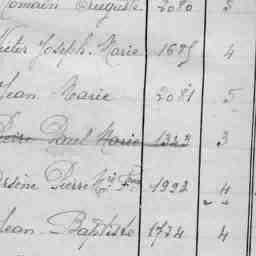 Romain Auguste 2080 5
Victor Joseph Marie 1685 4
Jean Marie 2081 5
Pierre Paul Marie 1323 3
Arsène Pierre Mie Fois 1992 4
Jean Baptiste 1724 4